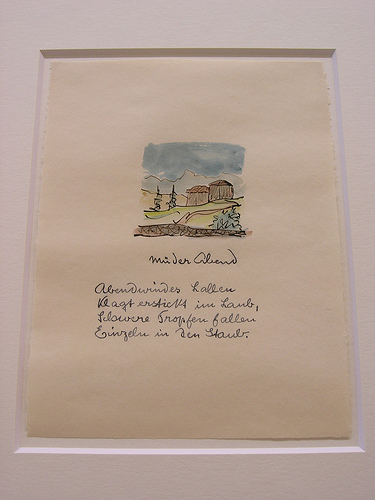 Müder Abend
Abendwindes Lallen
Klagt erstickt im Laub,
Schwere Tropfen fallen
Einzeln in den Staub.